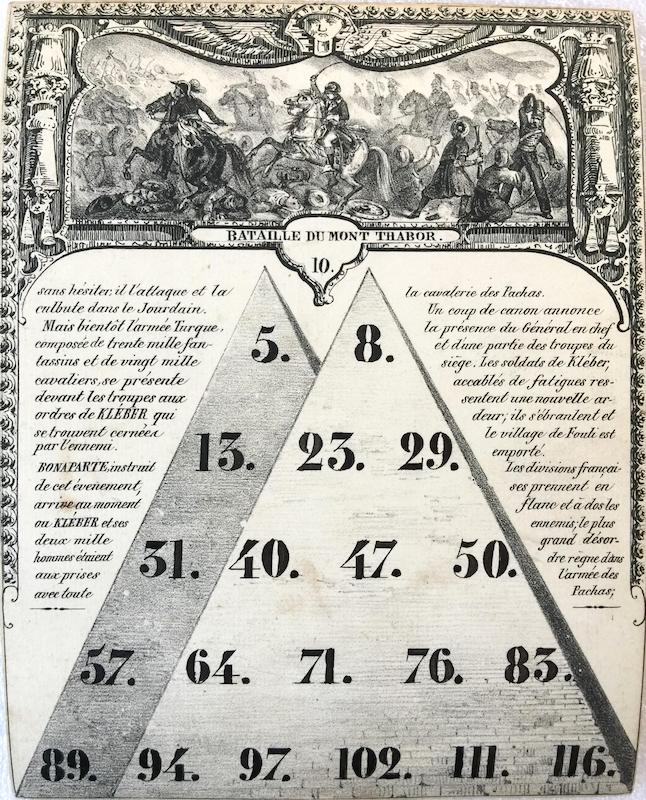 BATAILLE DU MONT THABOR.
10.
sans hésiter, il l'attaque et la
culbute dans le Jourdain.
Mais bientôt l'armée Turque,
composée de trente mille fan-
tassins et de vingt mille
cavaliers, se présente
devant les troupes aux
ordres de KLÉBER qui
se trouvent cernées
par l'ennemi.
BONAPARTE, instruit
de cet évenement,
arrive au moment
ou KLÉBER et ses
deux mille
hommes étaient
aux prises
avec toute
la cavalerie des Pachas.
Un coup de canon annonce
la présence du Général en chef
et d'une partie des troupes du
siége. Les soldats de Kléber,
accablés de fatigues res-
sentent une nouvelle ar-
deur; ils s'ébranlent et
le village de Fouli est
emporté.
Les divisions françai-
ses prennent en
flanc et à dos les
ennemis; le plus
grand désor-
dre règne dans
l'armée des
Pachas;
5. 8.
13. 23. 29.
31. 40. 47. 50.
57. 64. 71. 76. 83.
89. 94. 97. 102. 111. 116.